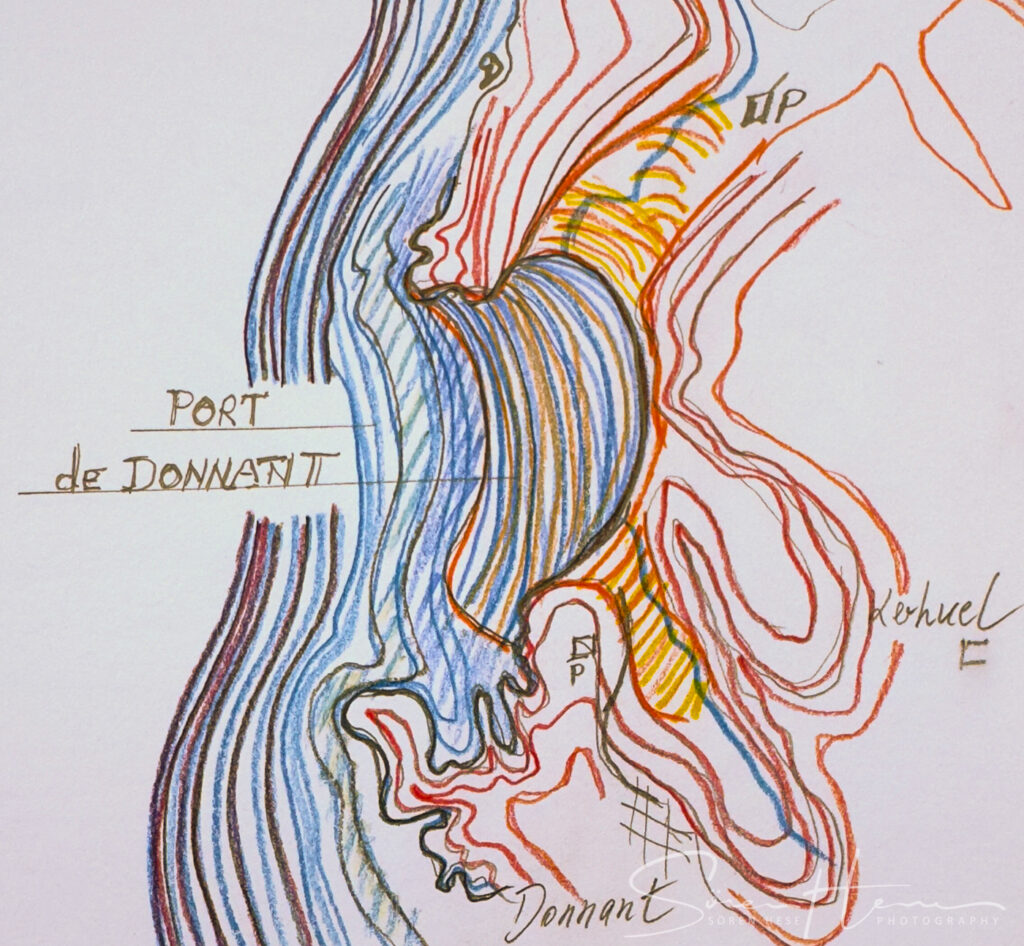 P
PORT
de DONNANT
Kerhuel
P
Donnant
SÖREN HESE PHOTOGRAPHY